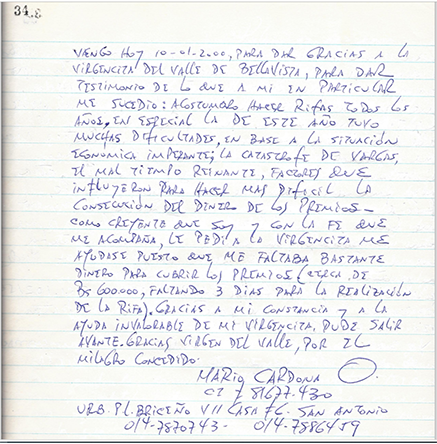 34.E
VENGO HOY 10-01-2000, PARA DAR GRACIAS A LA
VIRGENCITA DEL VALLE DE BELLAVISTA, PARA DAR
TESTIMONIO DE LO QUE A MI EN PARTICULAR
ME SUCEDIO: ACOSTUMBRO HACER RIFAS TODOS LOS
AÑOS, EN ESPECIAL LA DE ESTE AÑO TUVO
MUCHAS DIFICULTADES, EN BASE A LA SITUACIÓN
ECONOMICA IMPERANTE; LA CATASTROFE DE VARGAS,
EL MAL TIEMPO REINANTE, FACTORES QUE
INFLUYERON PARA HACER MAS DIFICIL LA
CONSECUCIÓN DEL DINERO DE LOS PREMIOS-
COMO CREYENTE QUE SOY Y CON LA FE QUE
ME ACOMPAÑA, LE PEDI A LA VIRGENCITA ME
AYUDASE PUESTO QUE ME FALTABA BASTANTE
DINERO PARA CUBRIR LOS PREMIOS (CERCA DE
Bs 600000, FALTANDO 3 DIAS PARA LA REALIZACIÓN
DE LA RIFA). GRACIAS A MI CONSTANCIA Y A LA
AYUDA INVALORABLE DE MI VIRGENCITA, PUDE SALIR
AVANTE. GRACIAS VIRGEN DEL VALLE, POR EL
MILAGRO CONCEDIDO.
MARIO CARDONA
CI 81677.430
URB. P.L. BRICEÑO VII CASA 76. SAN ANTONIO
014-7870743- 014-7886459